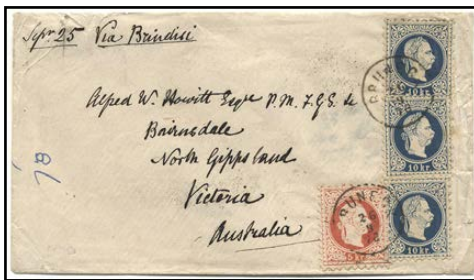 Sepr 25 Via Brindisi
Alfred W. Howitt Esqre P.M. F.G.S. &c
Bairnsdale
North Gippsland
Victoria
Australia
10 kr.
10 kr.
10 kr.